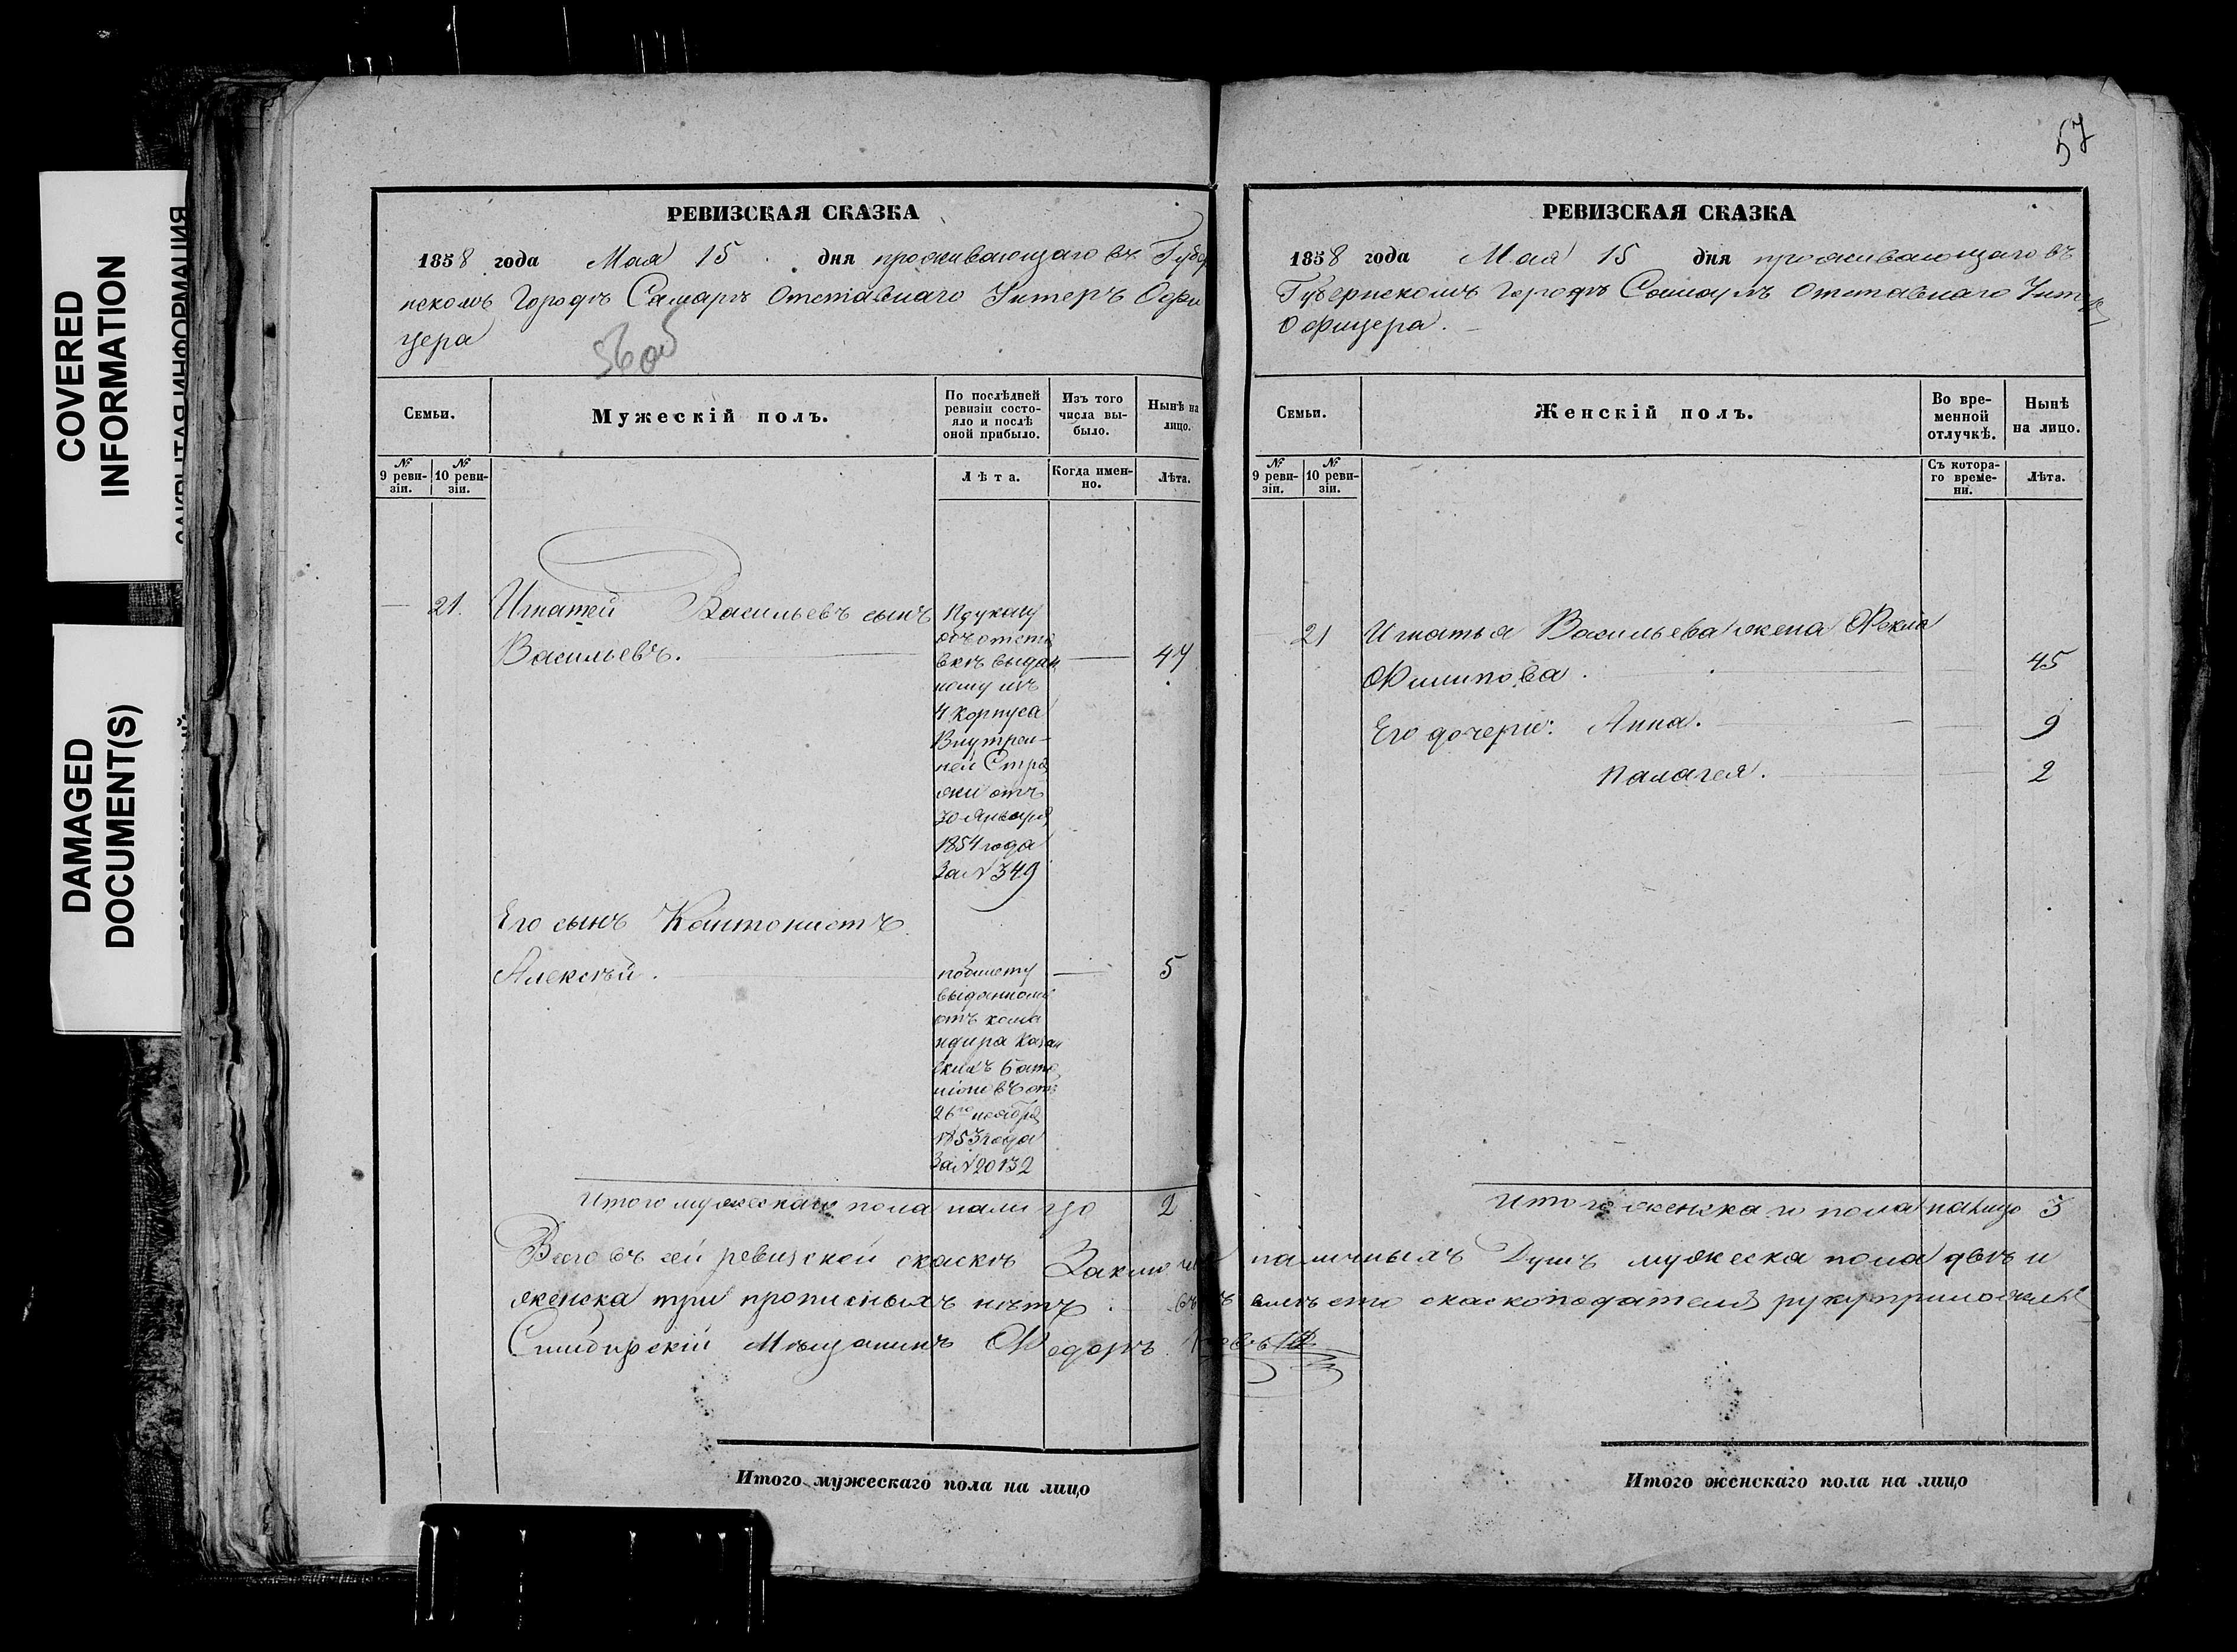 COVERED
INFORMATION
DAMAGED
DOCUMENT(S)
РЕВИЗСКАЯ СКАЗКА
1858 года Мая 15 дня проживающаго въ Губер
нскомъ Городѣ Самарѣ Отставнаго Унтеръ Офи
цера
56 об
Семьи.
Мужескій полъ.
По послѣдней ревизіи состояло и послѣ оной прибыло.
Изъ того числа выбыло.
Нынѣ на лицо.
№ 9 ревизіи.
№ 10 ревизіи.
Лѣта.
Когда именно.
Лѣта.
21. Игнатей Васильевъ сынъ
Васильевъ. 47
По указу
объ отста
вкѣ выдан
ному изъ
4 корпуса
Внутрен-
ней Стра
жи отъ
30 Января
1854 года
За № 349
Его сынъ Кантонистъ
Алексѣй. 5
по билету
выданному
отъ кома
ндира Казан
скихъ бата
ліоновъ отъ
26го ноября
1853 года
За № 20132
Итого мужескаго пола на лицо 2
Всего въ сей ревизской скаскѣ Заключ
женска три прописныхъ нѣтъ.
Симбирскій Мѣщанинъ Ѳедоръ
Итого мужескаго пола на лицо
57
РЕВИЗСКАЯ СКАЗКА
1858 года Мая 15 дня проживающаго въ
Губернскомъ Городѣ Самарѣ Отставнаго Унтеръ
Офицера.
Семьи.
Женскій полъ.
Во временной отлучкѣ.
Нынѣ на лицо.
№ 9 ревизіи.
№ 10 ревизіи.
Съ котораго времени.
Лѣта.
21 Игнатья Васильева жена Ѳекла
Филипова. 45
Его дочери: Анна. 9
Палагея. 2
Итого женска го пола на лицо 3
наличныхъ Душъ мужеска пола двѣ и
вмѣсто скаскоподателя руку приложилъ
Итого женскаго пола на лицо